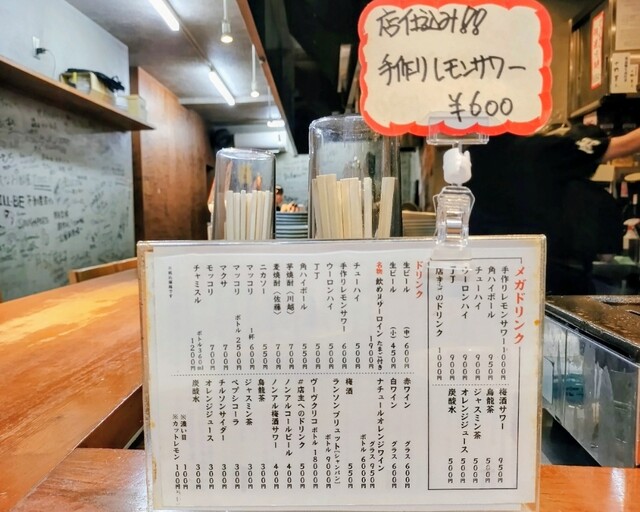 店仕込み!!
手作りレモンサワー
¥600
メガドリンク
手作りレモンサワー 1100円
角ハイボール 950円
チューハイ 900円
ウーロンハイ 900円
丁丁 900円
ドリンク 1000円
梅酒サワー 950円
烏龍茶
ジャスミン茶 500円
オレンジジュース 500円
炭酸水 500円
ドリンク
生ビール (中) 600円
生ビール (小) 450円
名物 飲めるサーロイン たまご付き 1900円
チューハイ 500円
手作りレモンサワー 600円
ウーロンハイ 500円
丁丁 500円
角ハイボール 550円
芋焼酎(川越) 700円
麦焼酎(佐藤) 700円
ニカソー 550円
マッコリ 1杯
マッコリ ボトル 2500円
マクサ 700円
モッコリ 700円
チャミスル ボトル360ml 1200円
赤ワイン グラス 600円
白ワイン グラス 600円
ナチュールオレンジワイン グラス 950円
ボトル 6000円
梅酒 550円
ランソンブリュット(シャンパン) ボトル 9000円
ヴーヴクリコ ボトル 18000円
#店主へのドリンク 500円
ノンアルコールビール 400円
ノンアル梅酒サワー 400円
烏龍茶 300円
ジャスミン茶 300円
ペプシコーラ 300円
チルソンサイダー 300円
オレンジジュース 300円
炭酸水 300円
※濃い目 100円
※カットレモン 100円